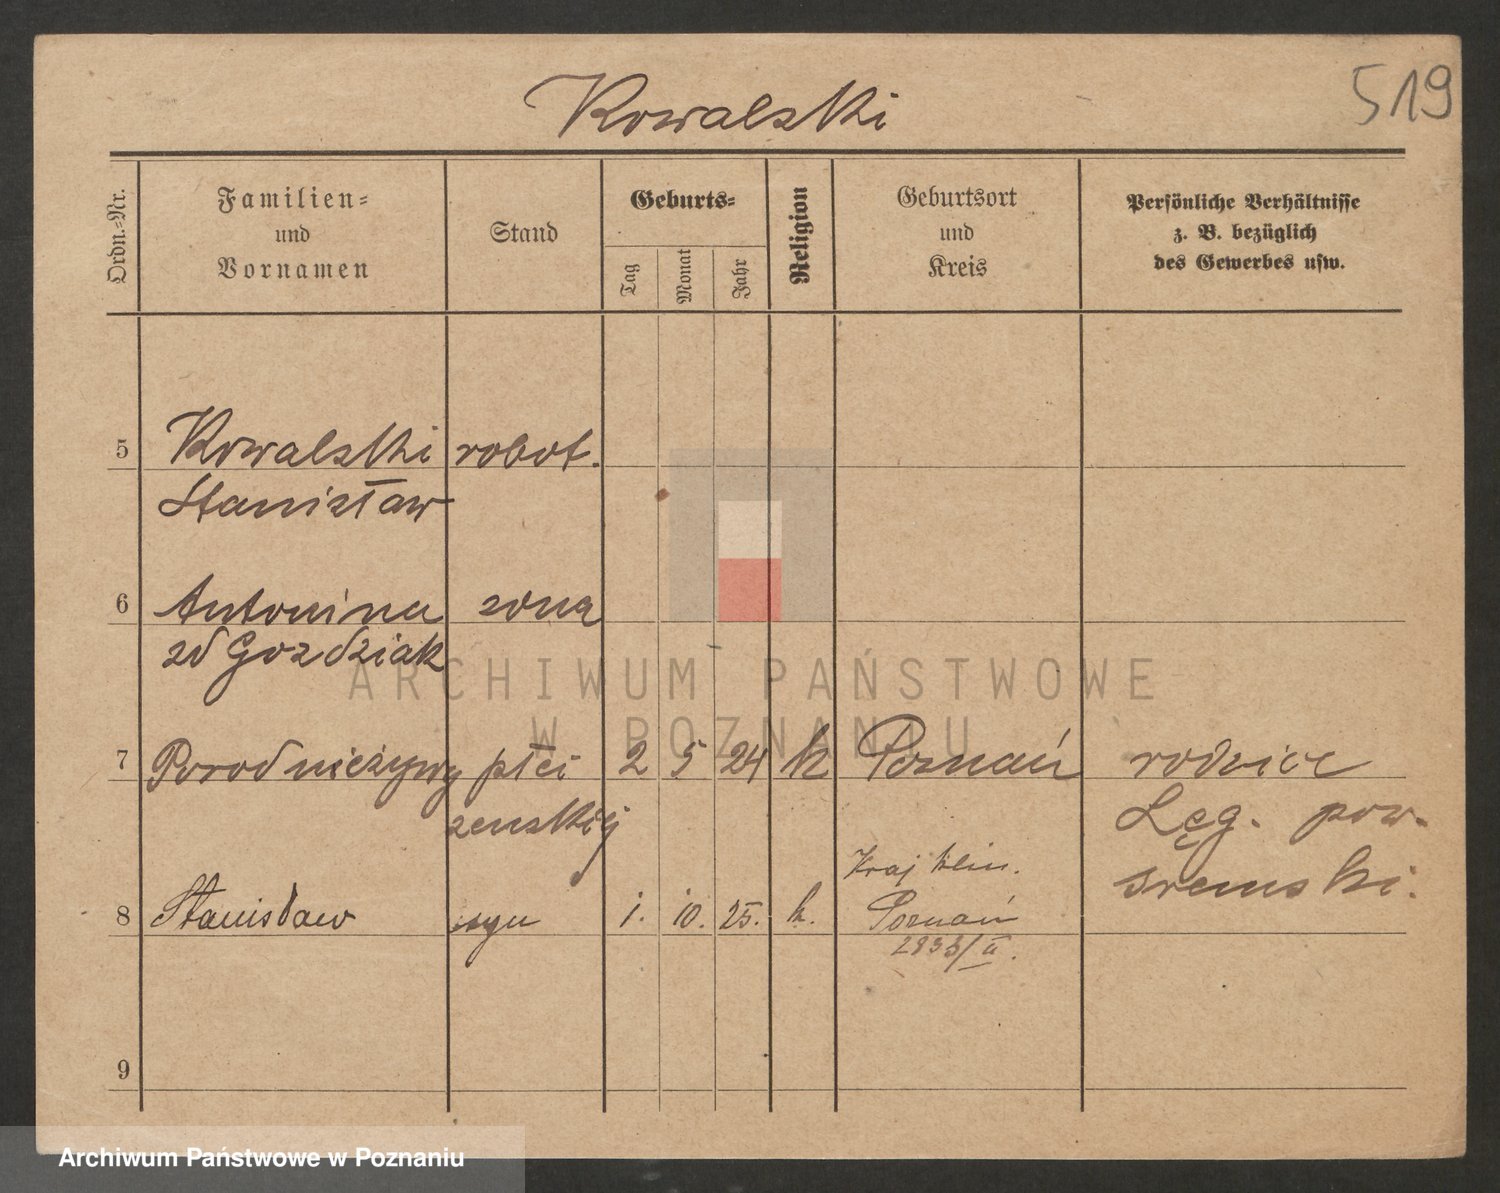 Kowalski
519
Ordn.=Nr.
Familien=
und
Vornamen
Stand
Geburts=
Tag
Monat
Jahr
Religion
Geburtsort
und
Kreis
Persönliche Verhältnisse
z. B. bezüglich
des Gewerbes usw.
5 Kowalski robot.
Stanisław
6 Antonina zona
zd Gozdziak
7 Porod nieżywy płci 2 5 24 k Poznań rodzice
zenskiej Łęg. pow.
sremski.
Kraj klin.
8 Stanisław syn 1. 10. 25. k. Poznań
2835/II.
9
ARCHIWUM PAŃSTWOWE
W POZNANIU
Archiwum Państwowe w Poznaniu